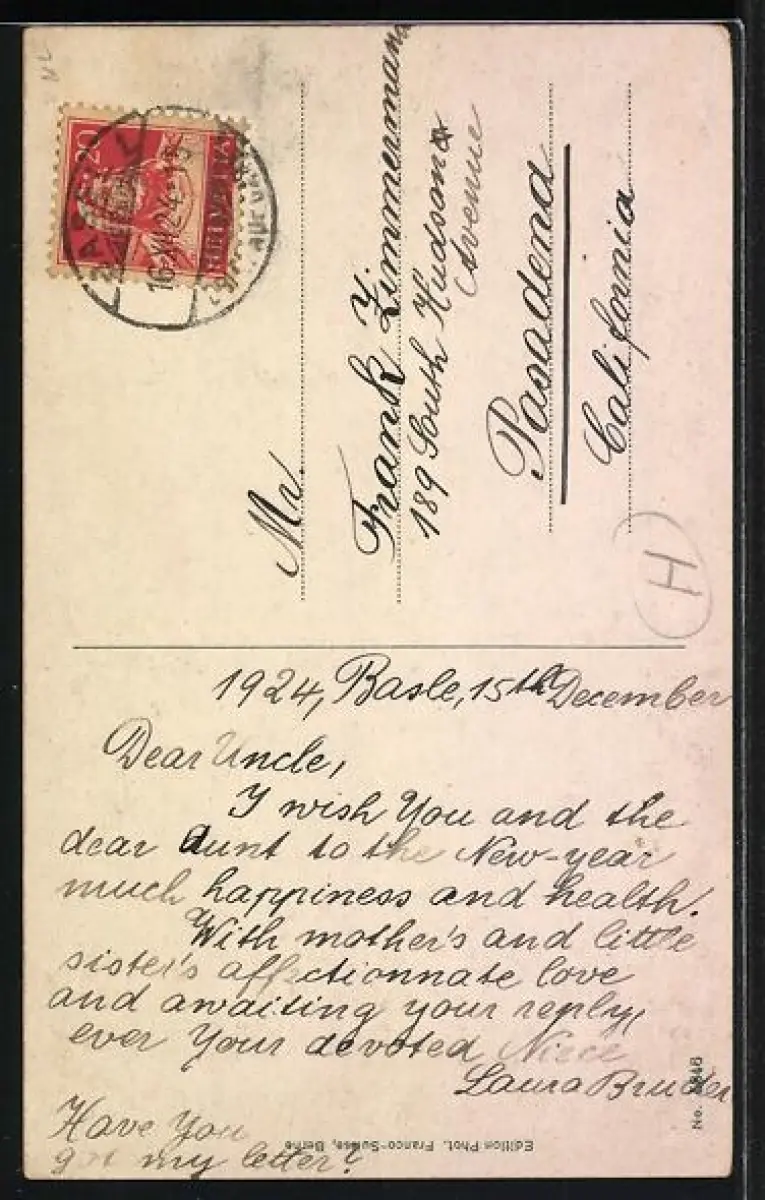 20
HELVETIA
BASEL
Mr.
Frank Zimmermann
189 South Hudson
Avenue
Pasadena
California
H
1924, Basle, 15th December
Dear Uncle,
I wish You and the
dear Aunt to the New-year
much happiness and health.
With mother's and little
sister's affectionnate love
and awaiting your reply,
ever Your devoted Niece
Laura Bruder
Have You
got my letter?
Edition Phot. Franco-Suisse, Berne